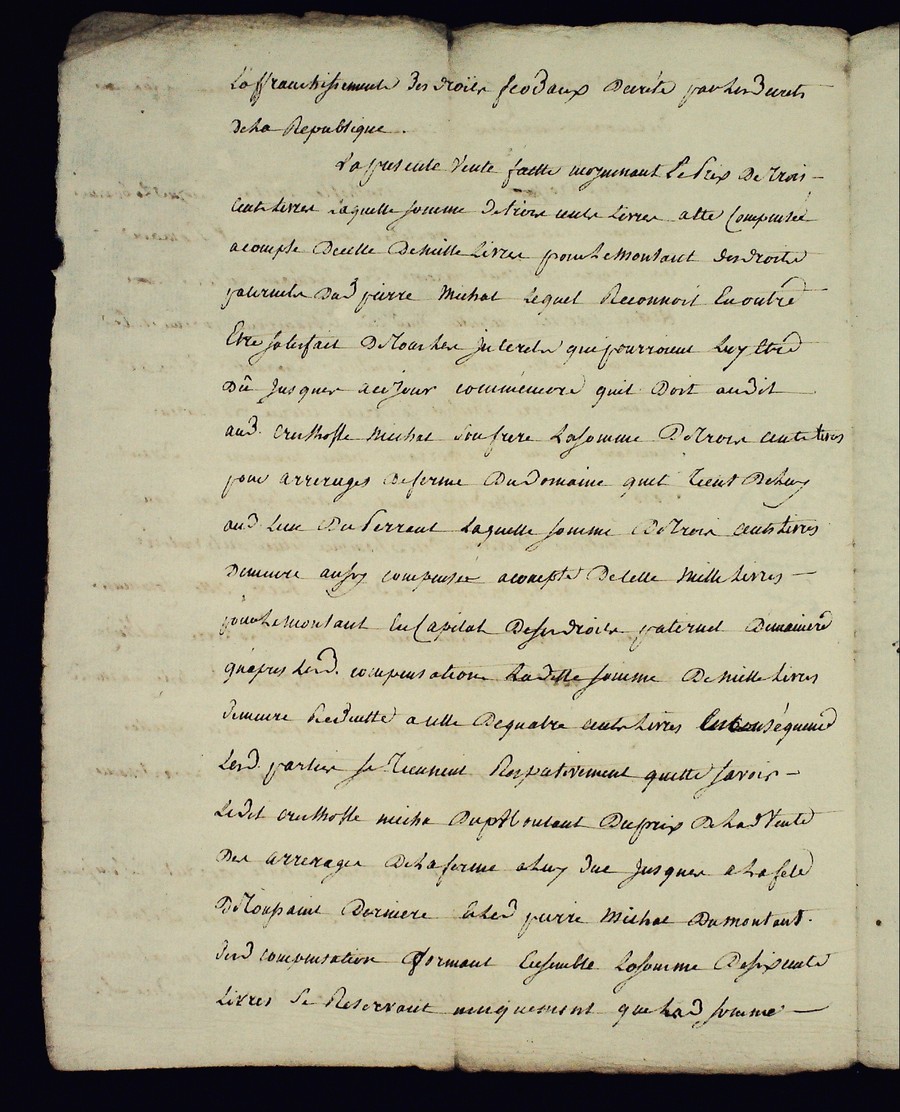 L'affranchissement des droits feodaux Decrété par les Decrets
De La Republique.
La presente Vente faitte moyenant Le Prix De Trois
Cents Livres Laquelle somme De trois cents Livres a été Compensée
a compte De celle De mille Livres pour Le montant des droits
paternels Dud pierre Michal Lequel Reconnoit En outre
Etre satisfait De Tous Les interets que pourroient Luy Etre
Dû Jusques a ce Jour comme encore quil Doit audit
aud. cristhofle Michal son frere La somme De trois cents livres
pour arrerages De ferme Du Domaine quil Tient De Luy
aud Lieu Du Perraut Laquelle somme De trois cents livres
Demeure aussy compensée a compte De celle Mille Livres
pour Le montant En Capital De ses droits paternel De maniere
quapres Lesd. compensations La ditte somme De mille Livres
demeure Reduitte a celle De quatre cents Livres En conséquence
Lesd. parties se Tiennent Respectivement quitte savoir
Ledit cristhofle micha Du Montant Du prix De Lad Vente
Des arrerages De La ferme a Luy due Jusques a La fete
De Toussaint Derniere Et Led pierre Michal Du montant
desd compensation formant Ensemble La somme De six cents
Livres Se Reservant uniquement que Lad somme